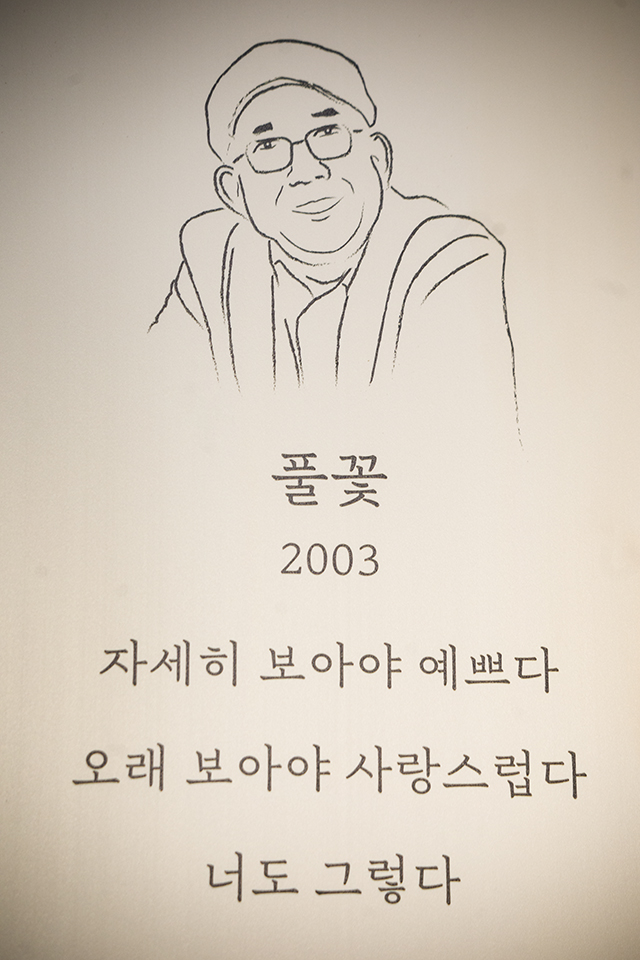 풀꽃
2003
자세히 보아야 예쁘다
오래 보아야 사랑스럽다
너도 그렇다